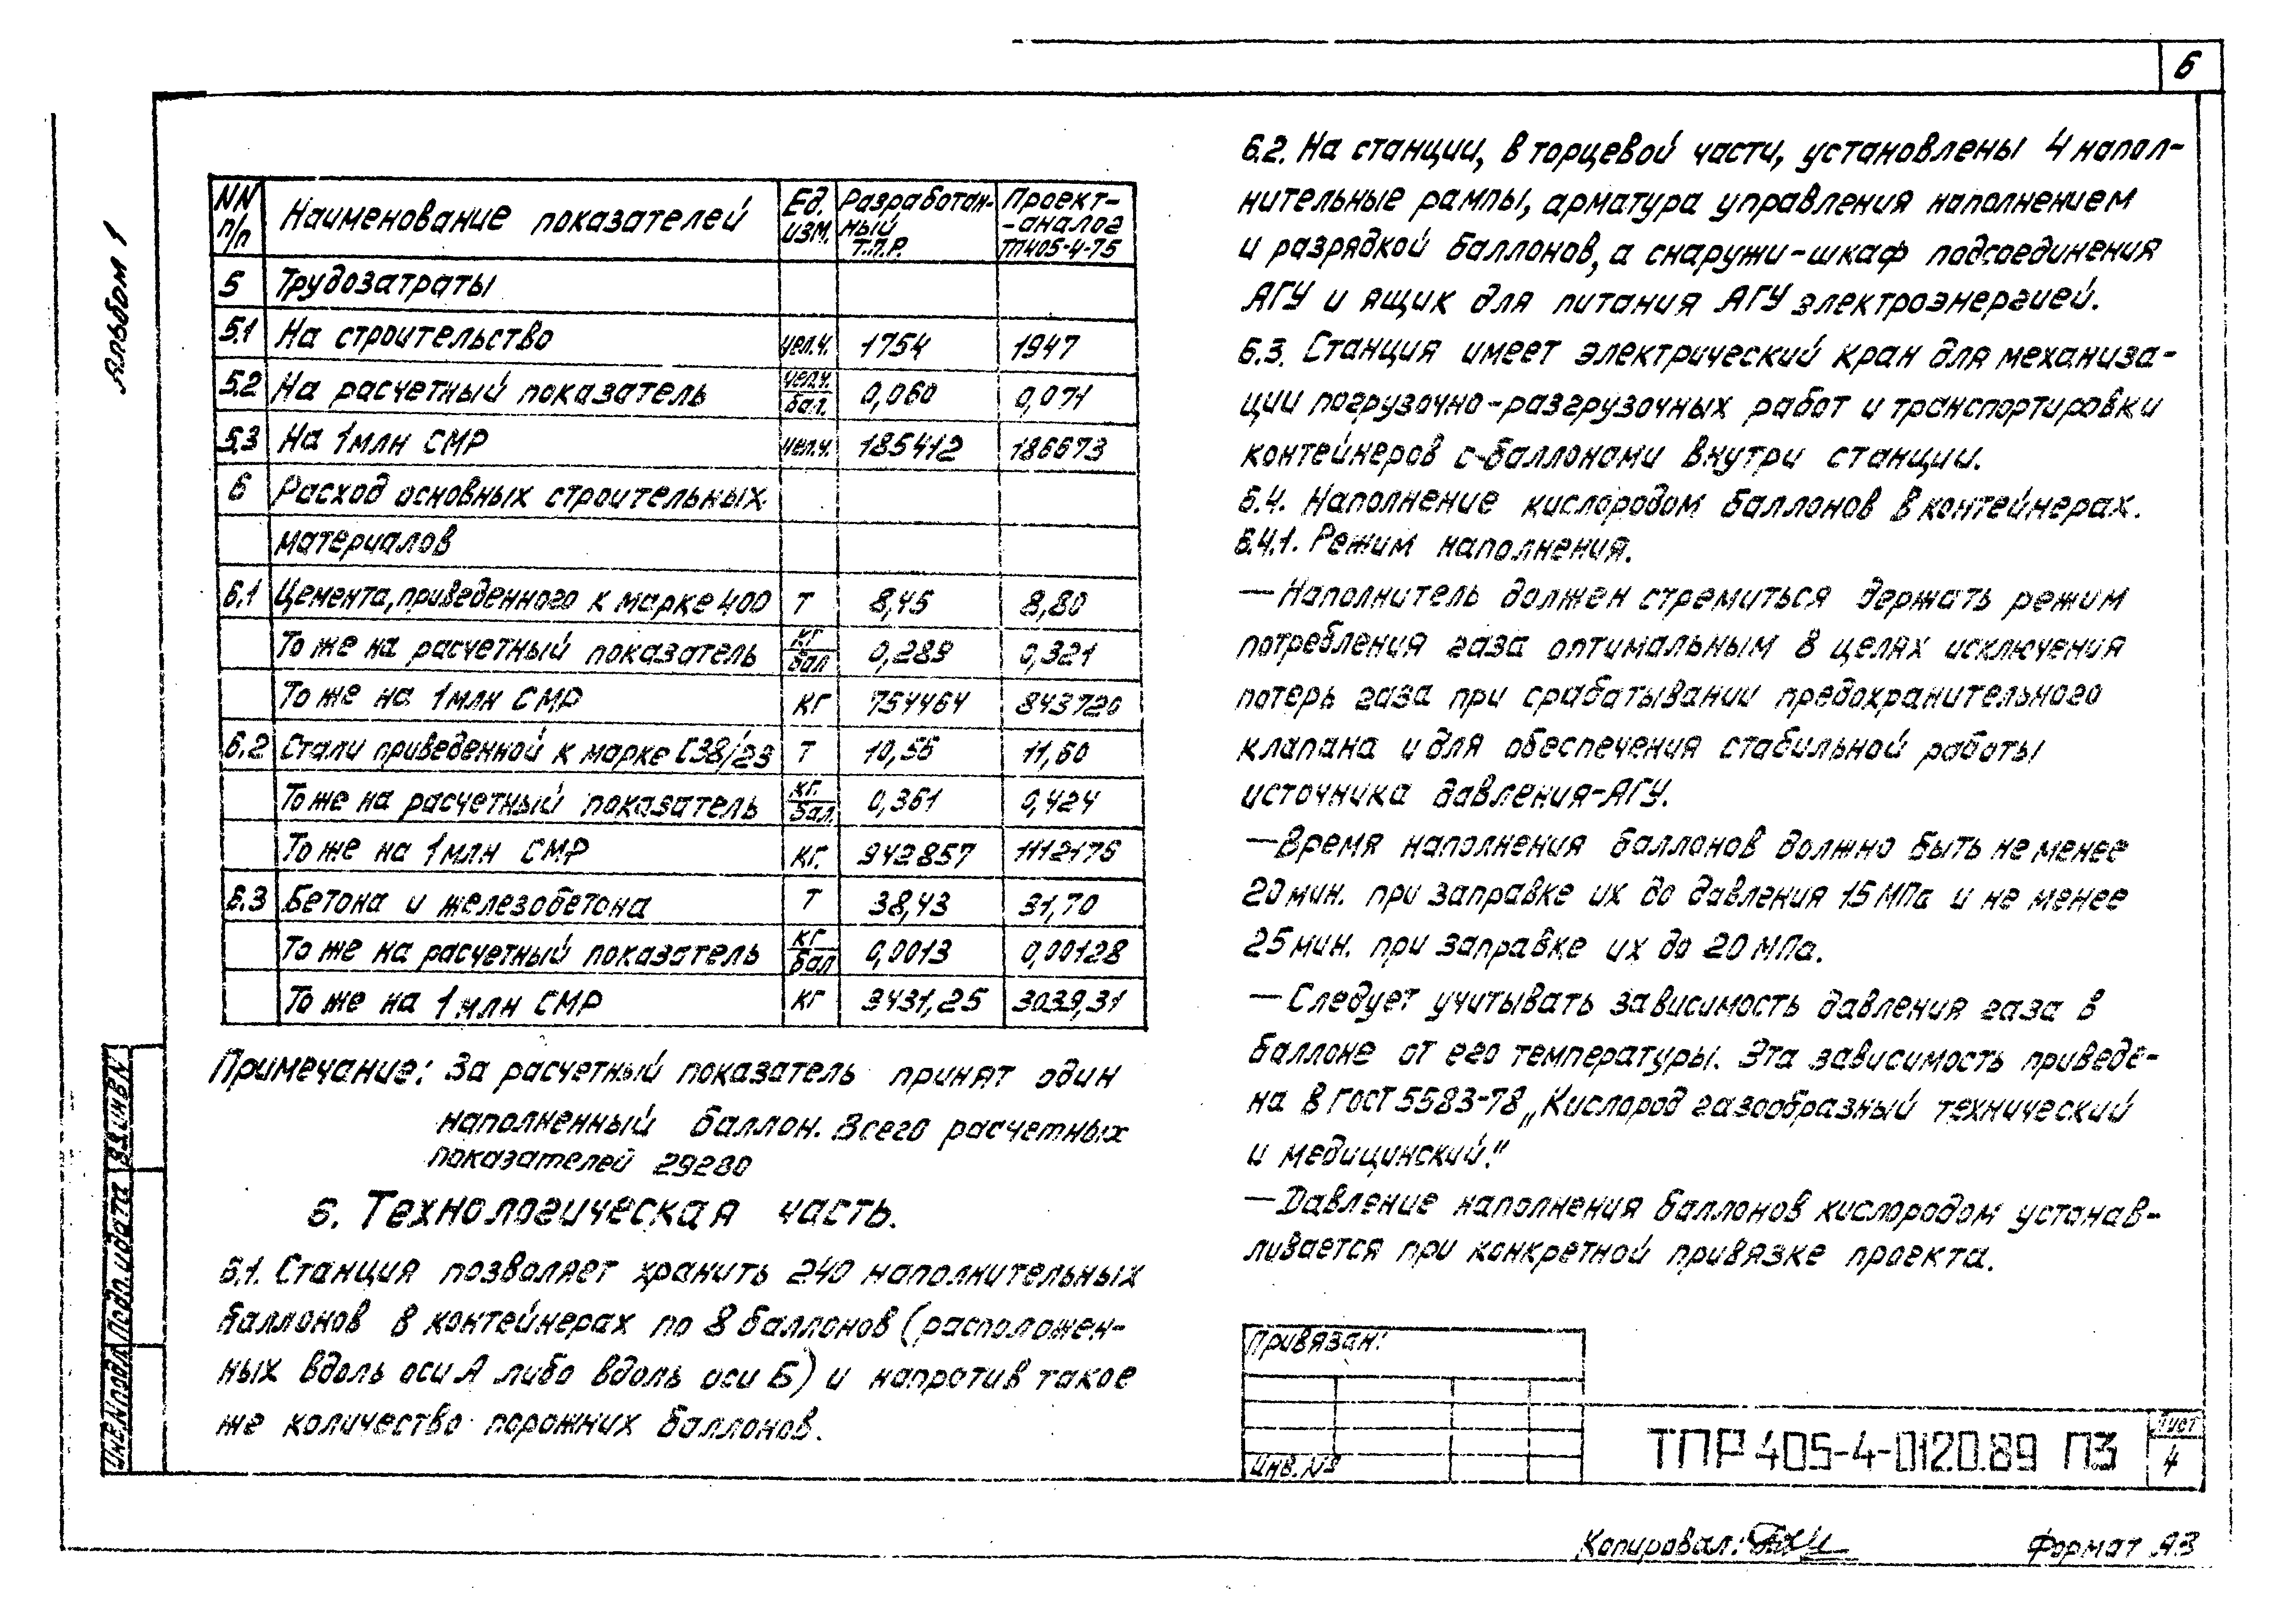 6
Альбом 1
NN п/п | Наименование показателей | Ед. изм. | Разработан-ный Т.П.Р. | Проект-аналог ТП405-4-75
5 | Трудозатраты
5.1 | На строительство | чел.ч. | 1754 | 1947
5.2 | На расчетный показатель | чел.ч./бал. | 0,060 | 0,071
5.3 | На 1 млн СМР | чел.ч. | 185412 | 186673
6 | Расход основных строительных
материалов
6.1 | Цемента, приведенного к марке 400 | Т | 8,45 | 8,80
То же на расчетный показатель | кг/бал | 0,289 | 0,321
То же на 1 млн СМР | кг | 754464 | 843720
6.2 | Стали приведенной к марке С38/23 | Т | 10,56 | 11,60
То же на расчетный показатель | кг./бал. | 0,361 | 0,424
То же на 1 млн СМР | кг. | 942857 | 1112176
6.3 | Бетона и железобетона | Т | 38,43 | 31,70
То же на расчетный показатель | кг/бал | 0,0013 | 0,00128
То же на 1 млн СМР | кг | 3431,25 | 3039,31
Примечание: За расчетный показатель принят один
наполненный баллон. Всего расчетных
показателей 29280
6. Технологическая часть.
6.1. Станция позволяет хранить 240 наполнительных
баллонов в контейнерах по 8 баллонов (расположен-
ных вдоль оси А либо вдоль оси Б) и напротив такое
же количество порожних баллонов.
6.2. На станции, в торцевой части, установлены 4 напол-
нительные рампы, арматура управления наполнением
и разрядкой баллонов, а снаружи-шкаф подсоединения
АГУ и ящик для питания АГУ электроэнергией.
6.3. Станция имеет электрический кран для механиза-
ции погрузочно-разгрузочных работ и транспортировки
контейнеров с баллонами внутри станции.
6.4. Наполнение кислородом баллонов в контейнерах.
6.4.1. Режим наполнения.
— Наполнитель должен стремиться держать режим
потребления газа оптимальным в целях исключения
потерь газа при срабатывании предохранительного
клапана и для обеспечения стабильной работы
источника давления-АГУ.
— Время наполнения баллонов должно быть не менее
20 мин. при заправке их до давления 15 МПа и не менее
25 мин. при заправке их до 20 МПа.
— Следует учитывать зависимость давления газа в
баллоне от его температуры. Эта зависимость приведе-
на в ГОСТ 5583-78 „Кислород газообразный технический
и медицинский."
— Давление наполнения баллонов кислородом устанав-
ливается при конкретной привязке проекта.
Привязан:
Инв. №
ТПР 405-4-0120.89 ПЗ
Лист
4
Инв.№подл. Подп. и дата Вз.инв.№
Копировал:
Формат А3